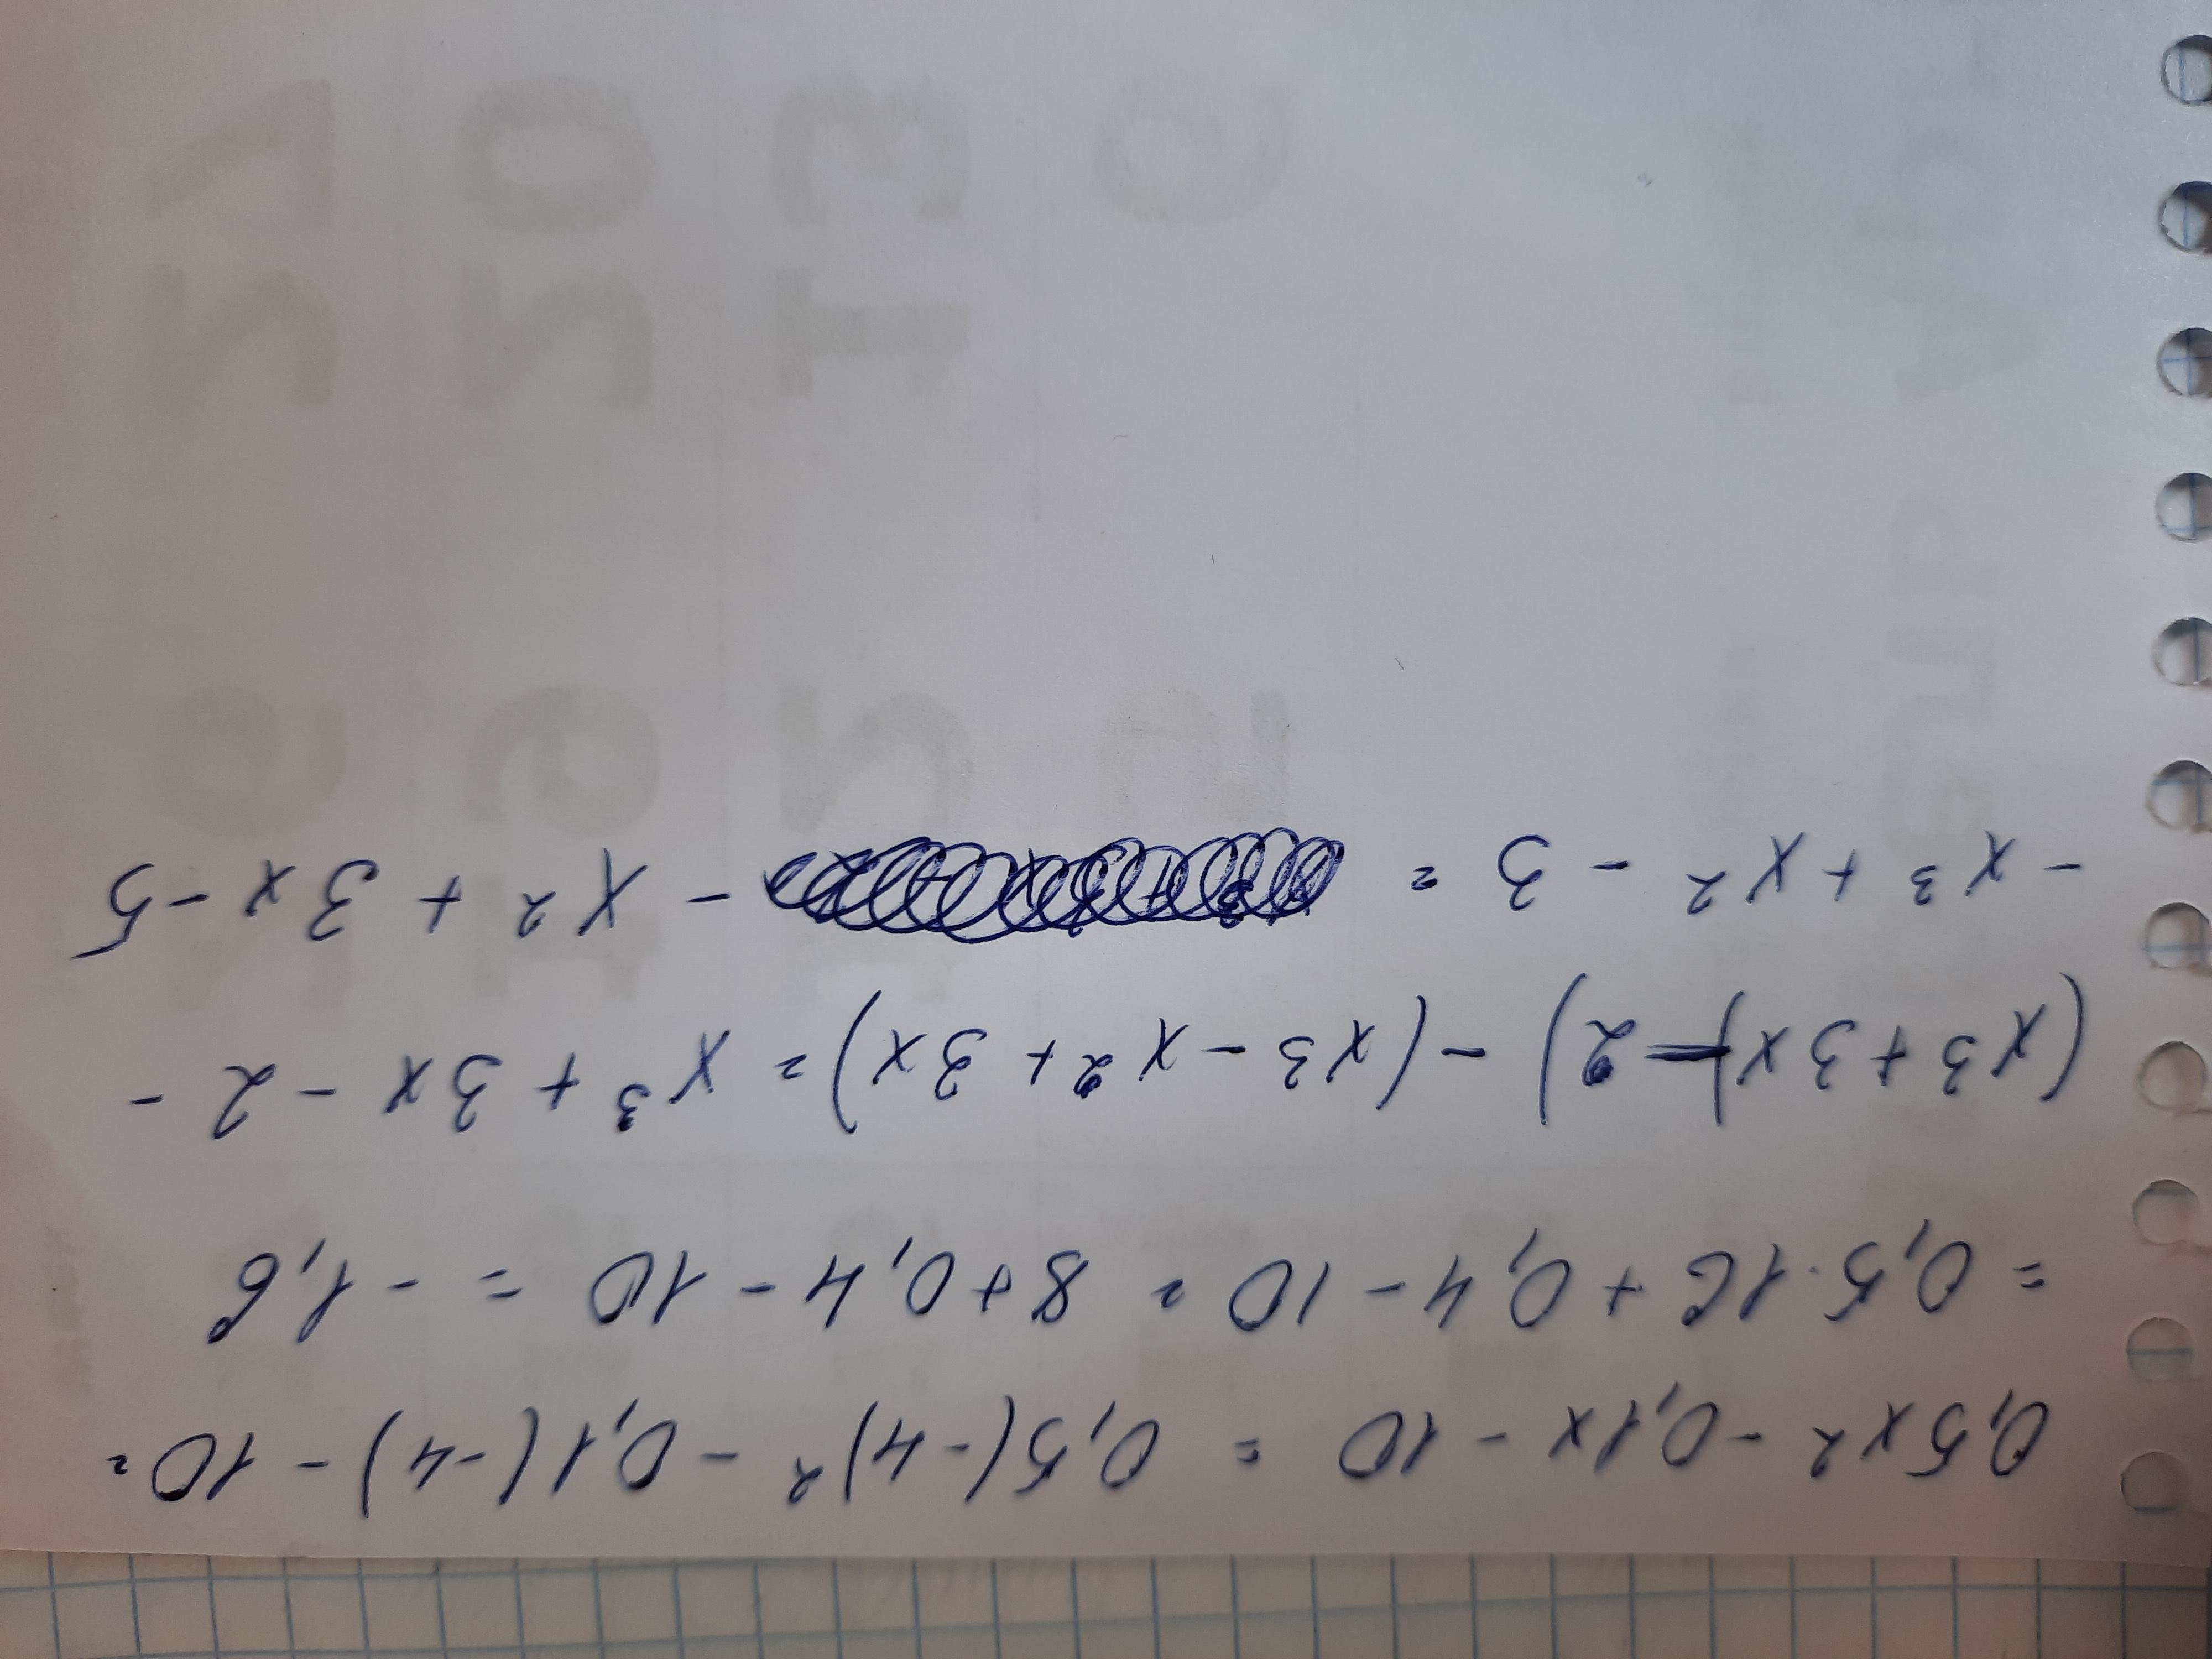 0,5x² - 0,1x - 10 = 0,5(-4)² - 0,1(-4) - 10 =
= 0,5·16 + 0,4 - 10 = 8 + 0,4 - 10 = - 1,6
(x³ + 3x - 2) - (x³ - x² + 3x) = x³ + 3x - 2 -
- x³ + x² - 3 = - x² + 3x - 5